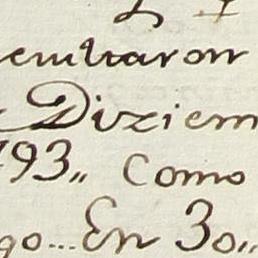 ecutaron
Diziem
793,, Como
go... En 30,,